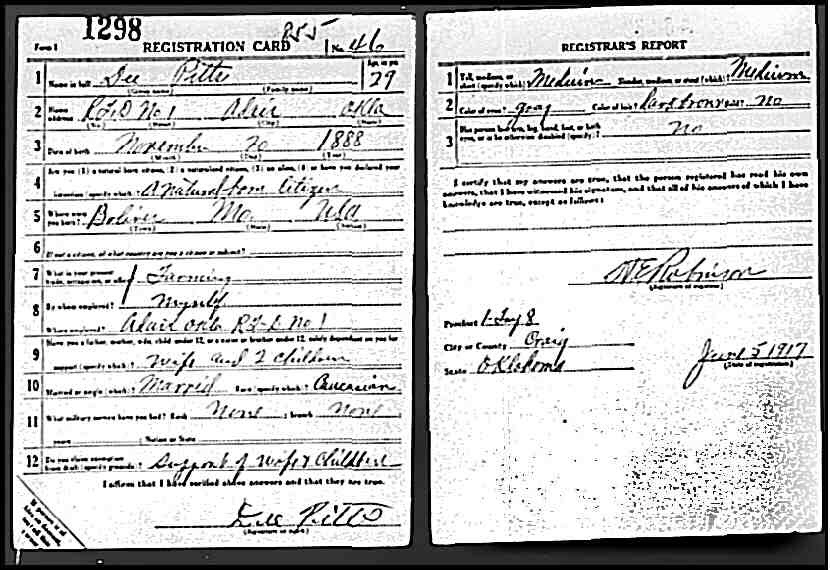 1298
Form 1 REGISTRATION CARD No. 46
Age, in yrs.
1 Name in full Dee Pitts 29
(Given name) (Family name)
2 Home address R.F.D No 1 Adair Okla
(No.) (Street) (City) (State)
3 Date of birth November 20 1888
(Month) (Day) (Year)
4 Are you (1) a natural born citizen, (2) a naturalized citizen, (3) an alien, (4) or have you declared your
intention (specify which)? A natural born Citizen
5 Where were you born? Boliver Mo. USA
(Town) (State) (Nation)
6 If not a citizen, of what country are you a citizen or subject?
7 What is your present trade, occupation, or office? Farming
8 By whom employed? Myself
Where employed? Adair Okla R.F.D No 1
9 Have you a father, mother, wife, child under 12, or a sister or brother under 12, solely dependent on you for
support (specify which)? Wife and 2 children
10 Married or single (which)? Married Race (specify which)? Caucasian
11 What military service have you had? Rank None ; branch None
years ; Nation or State
12 Do you claim exemption from draft (specify grounds)? Support of Wife & Children
I affirm that I have verified above answers and that they are true.
Dee Pitts
(Signature or mark)
REGISTRAR'S REPORT
1 Tall, medium, or short (specify which)? Medium Slender, medium, or stout (which)? Medium
2 Color of eyes? Gray Color of hair? Dark brown Bald? No
3 Has person lost arm, leg, hand, foot, or both
eyes, or is he otherwise disabled (specify)? No
I certify that my answers are true, that the person registered has read his own
answers, that I have witnessed his signature, and that all of his answers of which I have
knowledge are true, except as follows:
Robinson
(Signature of registrar)
Precinct
City or County Craig
State Oklahoma
June 5 1917
(Date of registration)